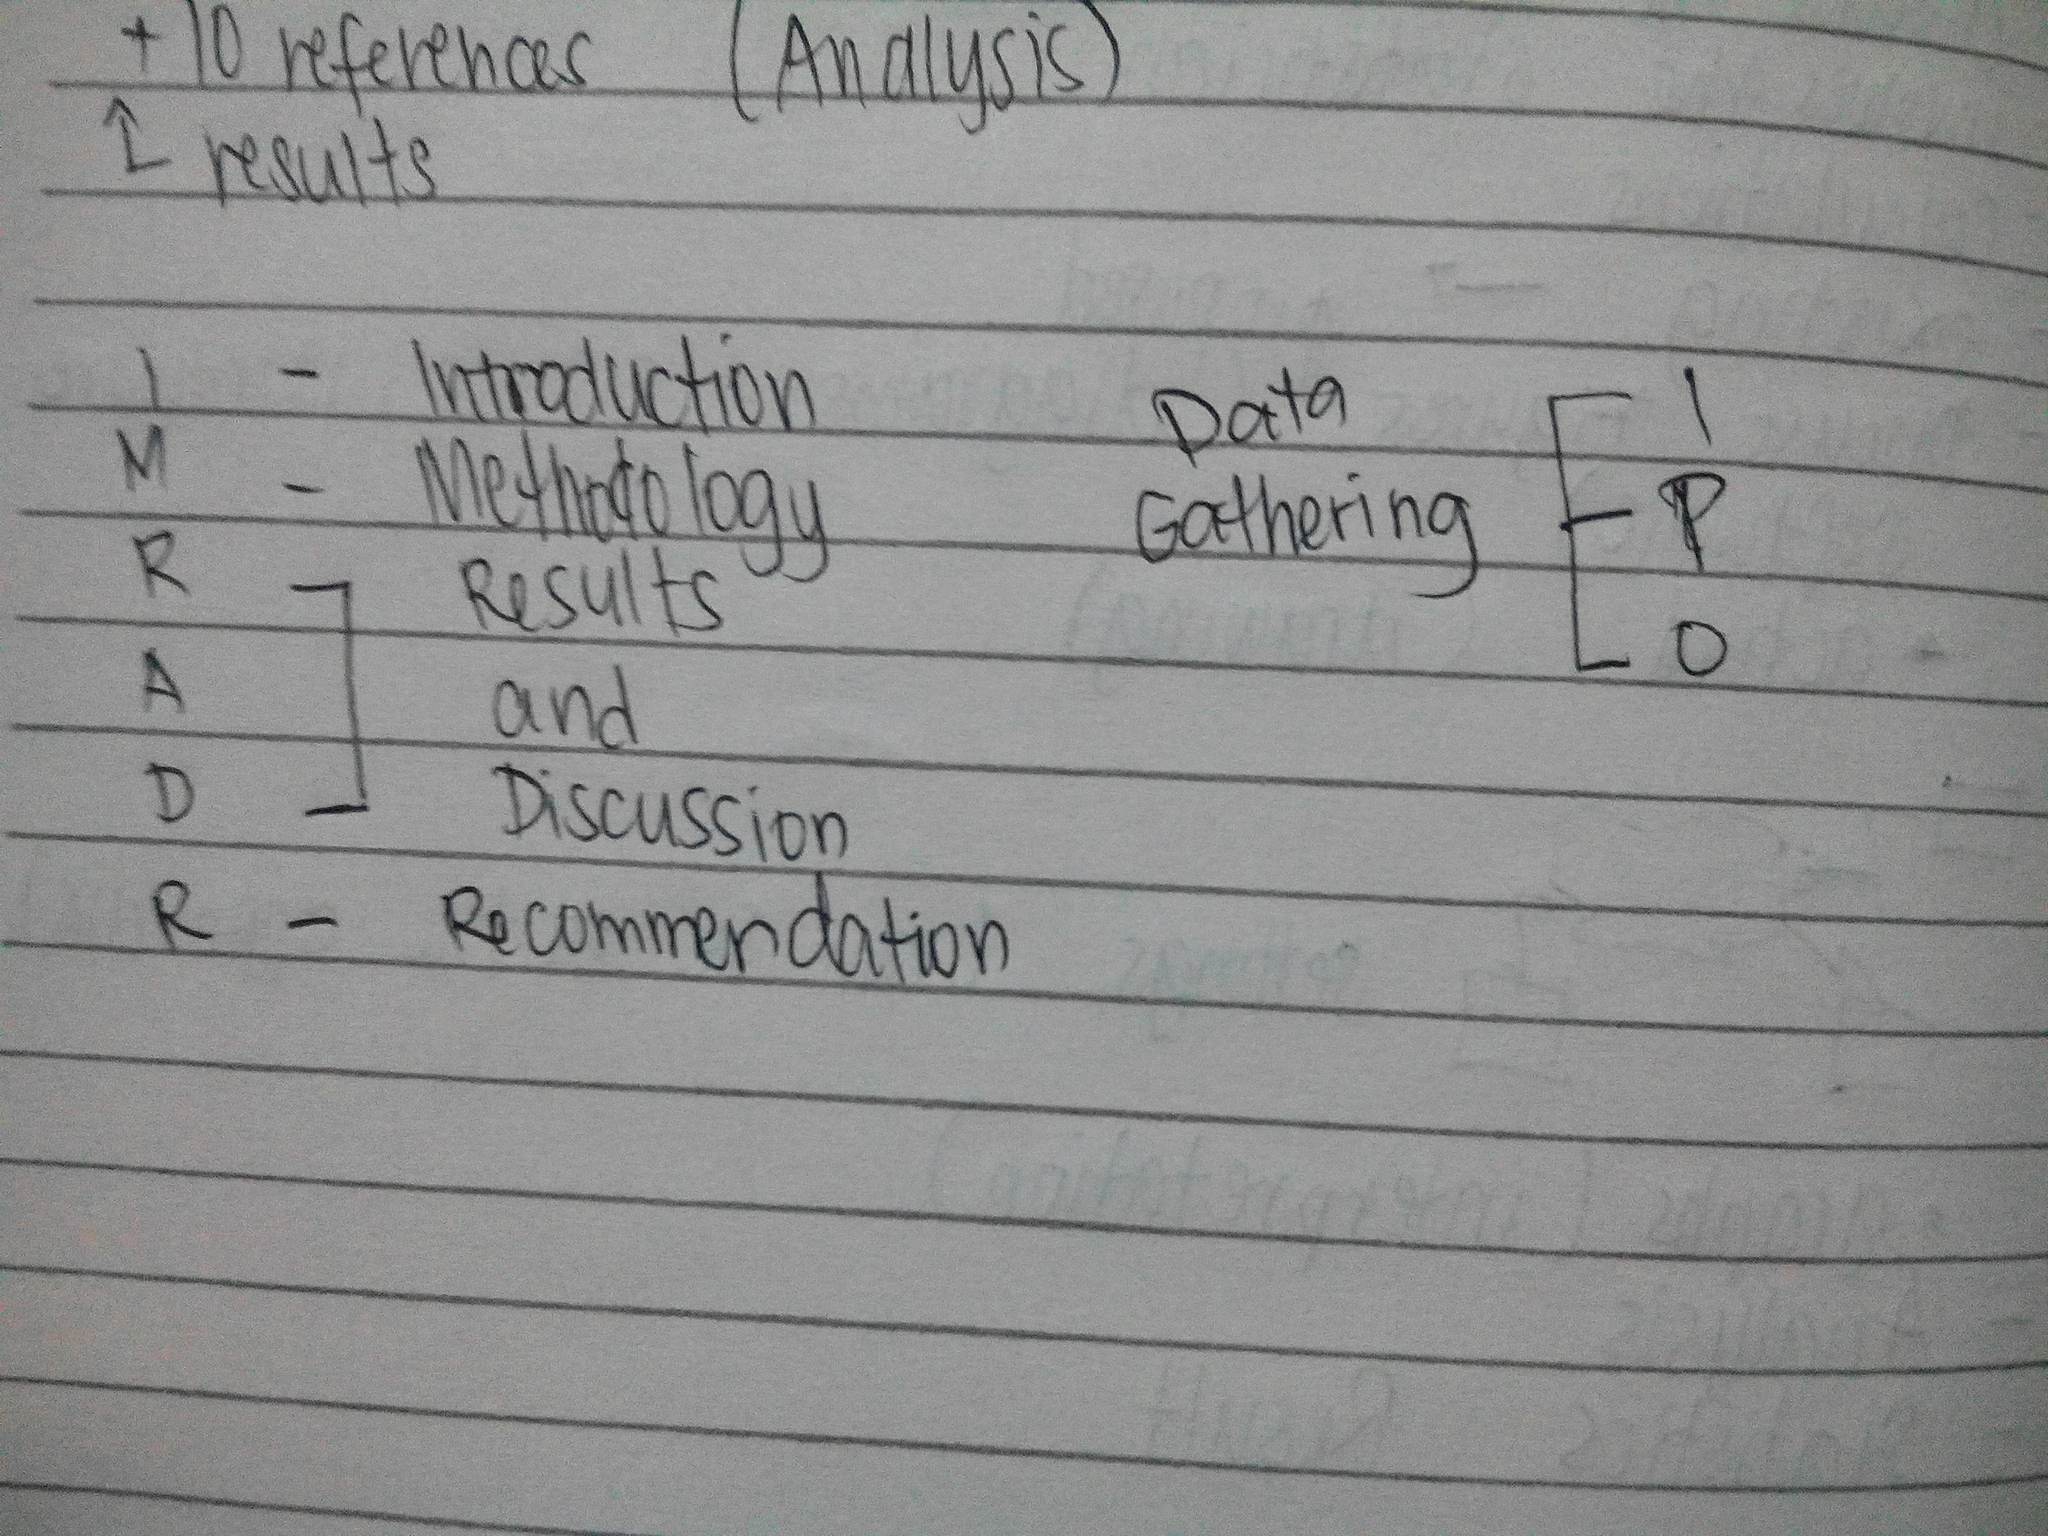 + 10 references (Analysis)
↑ results
I - Introduction
M - Methodology
R Results
A and
D Discussion
R - Recommendation
Data
Gathering
I
P
O